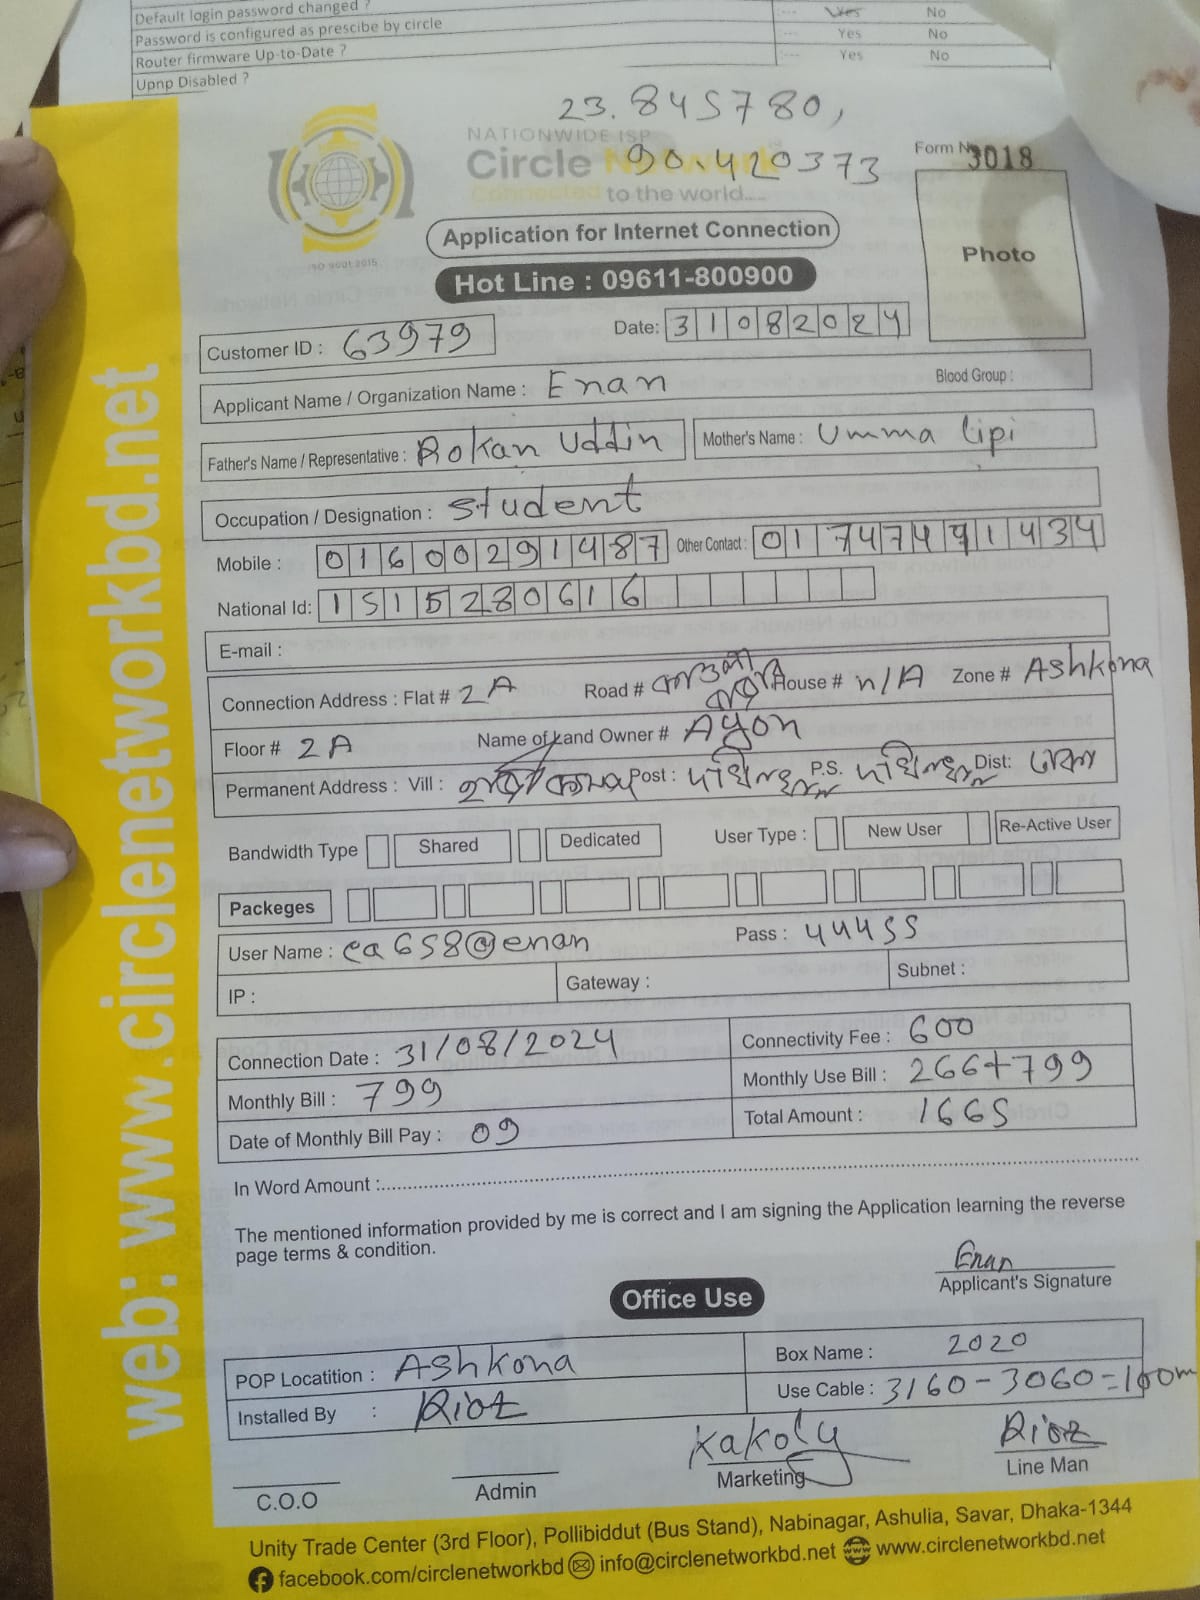 Default login password changed ? --- Yes No
Password is configured as prescibe by circle --- Yes No
Router firmware Up-to-Date ? --- Yes No
Upnp Disabled ?
23.845780,
90.420373
NATIONWIDE ISP
Circle Network
Connected to the world....
ISO 9001:2015
Form No 3018
Photo
Application for Internet Connection
Hot Line : 09611-800900
Customer ID : 63979
Date: 31082024
Applicant Name / Organization Name : Enan
Blood Group :
Father's Name / Representative : Rokan Uddin
Mother's Name : Umma lipi
Occupation / Designation : student
Mobile : 01600291487
Other Contact : 01747491434
National Id: 1515280616
E-mail :
Connection Address : Flat # 2A Road # House # n/A Zone # Ashkona
Floor # 2A Name of Land Owner # Ayon
Permanent Address : Vill : Post : P.S. Dist:
Bandwidth Type Shared Dedicated User Type : New User Re-Active User
Packeges
User Name : ca658@enan Pass : 44455
IP : Gateway : Subnet :
Connection Date : 31/08/2024 Connectivity Fee : 600
Monthly Bill : 799 Monthly Use Bill : 266+799
Date of Monthly Bill Pay : 09 Total Amount : 1665
In Word Amount :
The mentioned information provided by me is correct and I am signing the Application learning the reverse
page terms & condition.
Enan
Applicant's Signature
Office Use
POP Locatition : Ashkona Box Name : 2020
Installed By : Use Cable : 3160-3060=100m
Kakoly
C.O.O Admin Marketing Line Man
Unity Trade Center (3rd Floor), Pollibiddut (Bus Stand), Nabinagar, Ashulia, Savar, Dhaka-1344
facebook.com/circlenetworkbd info@circlenetworkbd.net www www.circlenetworkbd.net
web: www.circlenetworkbd.net